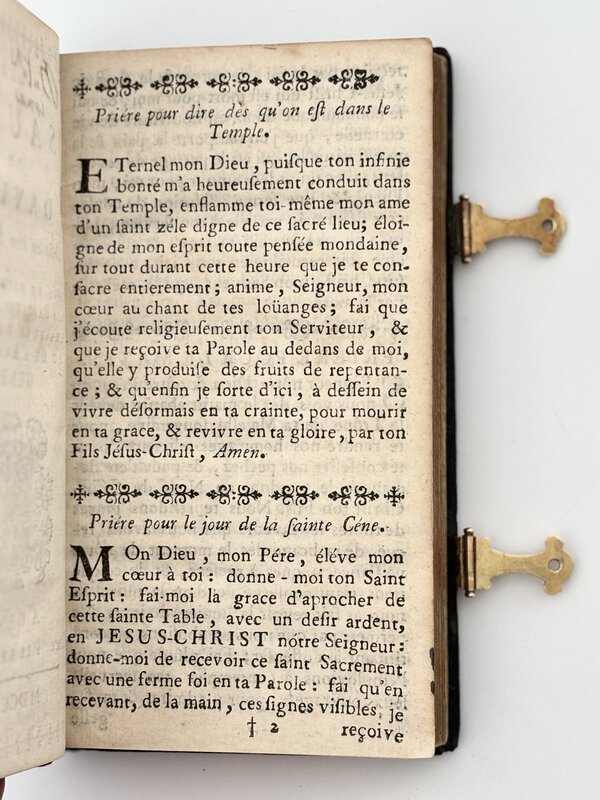 Priére pour dire dès qu'on eſt dans le
Temple.
ETernel mon Dieu, puiſque ton infinie
bonté m'a heureuſement conduit dans
ton Temple, enflamme toi-même mon ame
d'un ſaint zéle digne de ce ſacré lieu; éloi-
gne de mon eſprit toute penſée mondaine,
ſur tout durant cette heure que je te con-
ſacre entierement; anime, Seigneur, mon
cœur au chant de tes loüanges; fai que
j'écoute religieuſement ton Serviteur, &
que je reçoive ta Parole au dedans de moi,
qu'elle y produiſe des fruits de repentan-
ce; & qu'enfin je ſorte d'ici, à deſſein de
vivre déſormais en ta crainte, pour mourir
en ta grace, & revivre en ta gloire, par ton
Fils Jéſus-Chriſt, Amen.
Priére pour le jour de la ſainte Céne.
MOn Dieu, mon Pére, éléve mon
cœur à toi: donne-moi ton Saint
Eſprit: fai-moi la grace d'aprocher de
cette ſainte Table, avec un deſir ardent,
en JESUS-CHRIST nôtre Seigneur:
donne-moi de recevoir ce ſaint Sacrement
avec une ferme foi en ta Parole: fai qu'en
recevant, de la main, ces ſignes viſibles, je
† 2 reçoive